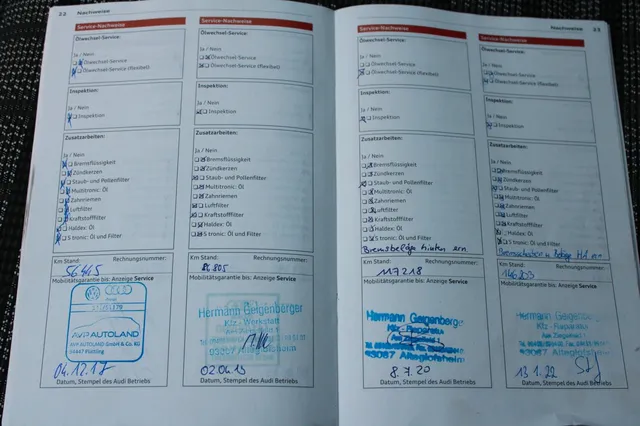 22 Nachweise
Service-Nachweise
Ölwechsel-Service:
Ja / Nein
Ölwechsel-Service
Ölwechsel-Service (flexibel)
Inspektion:
Ja / Nein
Inspektion
Zusatzarbeiten:
Ja / Nein
Bremsflüssigkeit
Zündkerzen
Staub- und Pollenfilter
Multitronic: Öl
Zahnriemen
Luftfilter
Kraftstofffilter
Haldex: Öl
S tronic: Öl und Filter
Km Stand: Rechnungsnummer:
56445
Mobilitätsgarantie bis: Anzeige Service
AVP AUTOLAND
AVP AUTOLAND GmbH & Co. KG
94447 Plattling
04.12.17
Datum, Stempel des Audi Betriebs
Service-Nachweise
Ölwechsel-Service:
Ja / Nein
Ölwechsel-Service
Ölwechsel-Service (flexibel)
Inspektion:
Ja / Nein
Inspektion
Zusatzarbeiten:
Ja / Nein
Bremsflüssigkeit
Zündkerzen
Staub- und Pollenfilter
Multitronic: Öl
Zahnriemen
Luftfilter
Kraftstofffilter
Haldex: Öl
S tronic: Öl und Filter
Km Stand: Rechnungsnummer:
805
Mobilitätsgarantie bis: Anzeige Service
Hermann Geigenberger
Kfz - Werkstatt
93087 Alteglofsheim
Datum, Stempel des Audi Betriebs
Nachweise 23
Service-Nachweise
Ölwechsel-Service:
Ja / Nein
Ölwechsel-Service
Ölwechsel-Service (flexibel)
Inspektion:
Ja / Nein
Inspektion
Zusatzarbeiten:
Ja / Nein
Bremsflüssigkeit
Zündkerzen
Staub- und Pollenfilter
Multitronic: Öl
Zahnriemen
Luftfilter
Kraftstofffilter
Haldex: Öl
S tronic: Öl und Filter
Bremsbeläge hinten ern.
Km Stand: Rechnungsnummer:
117218
Mobilitätsgarantie bis: Anzeige Service
Hermann Geigenberger
93087 Alteglofsheim
8.7.20
Datum, Stempel des Audi Betriebs
Service-Nachweise
Ölwechsel-Service:
Ja / Nein
Ölwechsel-Service
Ölwechsel-Service (flexibel)
Inspektion:
Ja / Nein
Inspektion
Zusatzarbeiten:
Ja / Nein
Bremsflüssigkeit
Zündkerzen
Staub- und Pollenfilter
Multitronic: Öl
Zahnriemen
Luftfilter
Kraftstofffilter
Haldex: Öl
S tronic: Öl und Filter
Km Stand: Rechnungsnummer:
Mobilitätsgarantie bis: Anzeige Service
Hermann Geigenberger
93087 Alteglofsheim
13.1.22
Datum, Stempel des Audi Betriebs